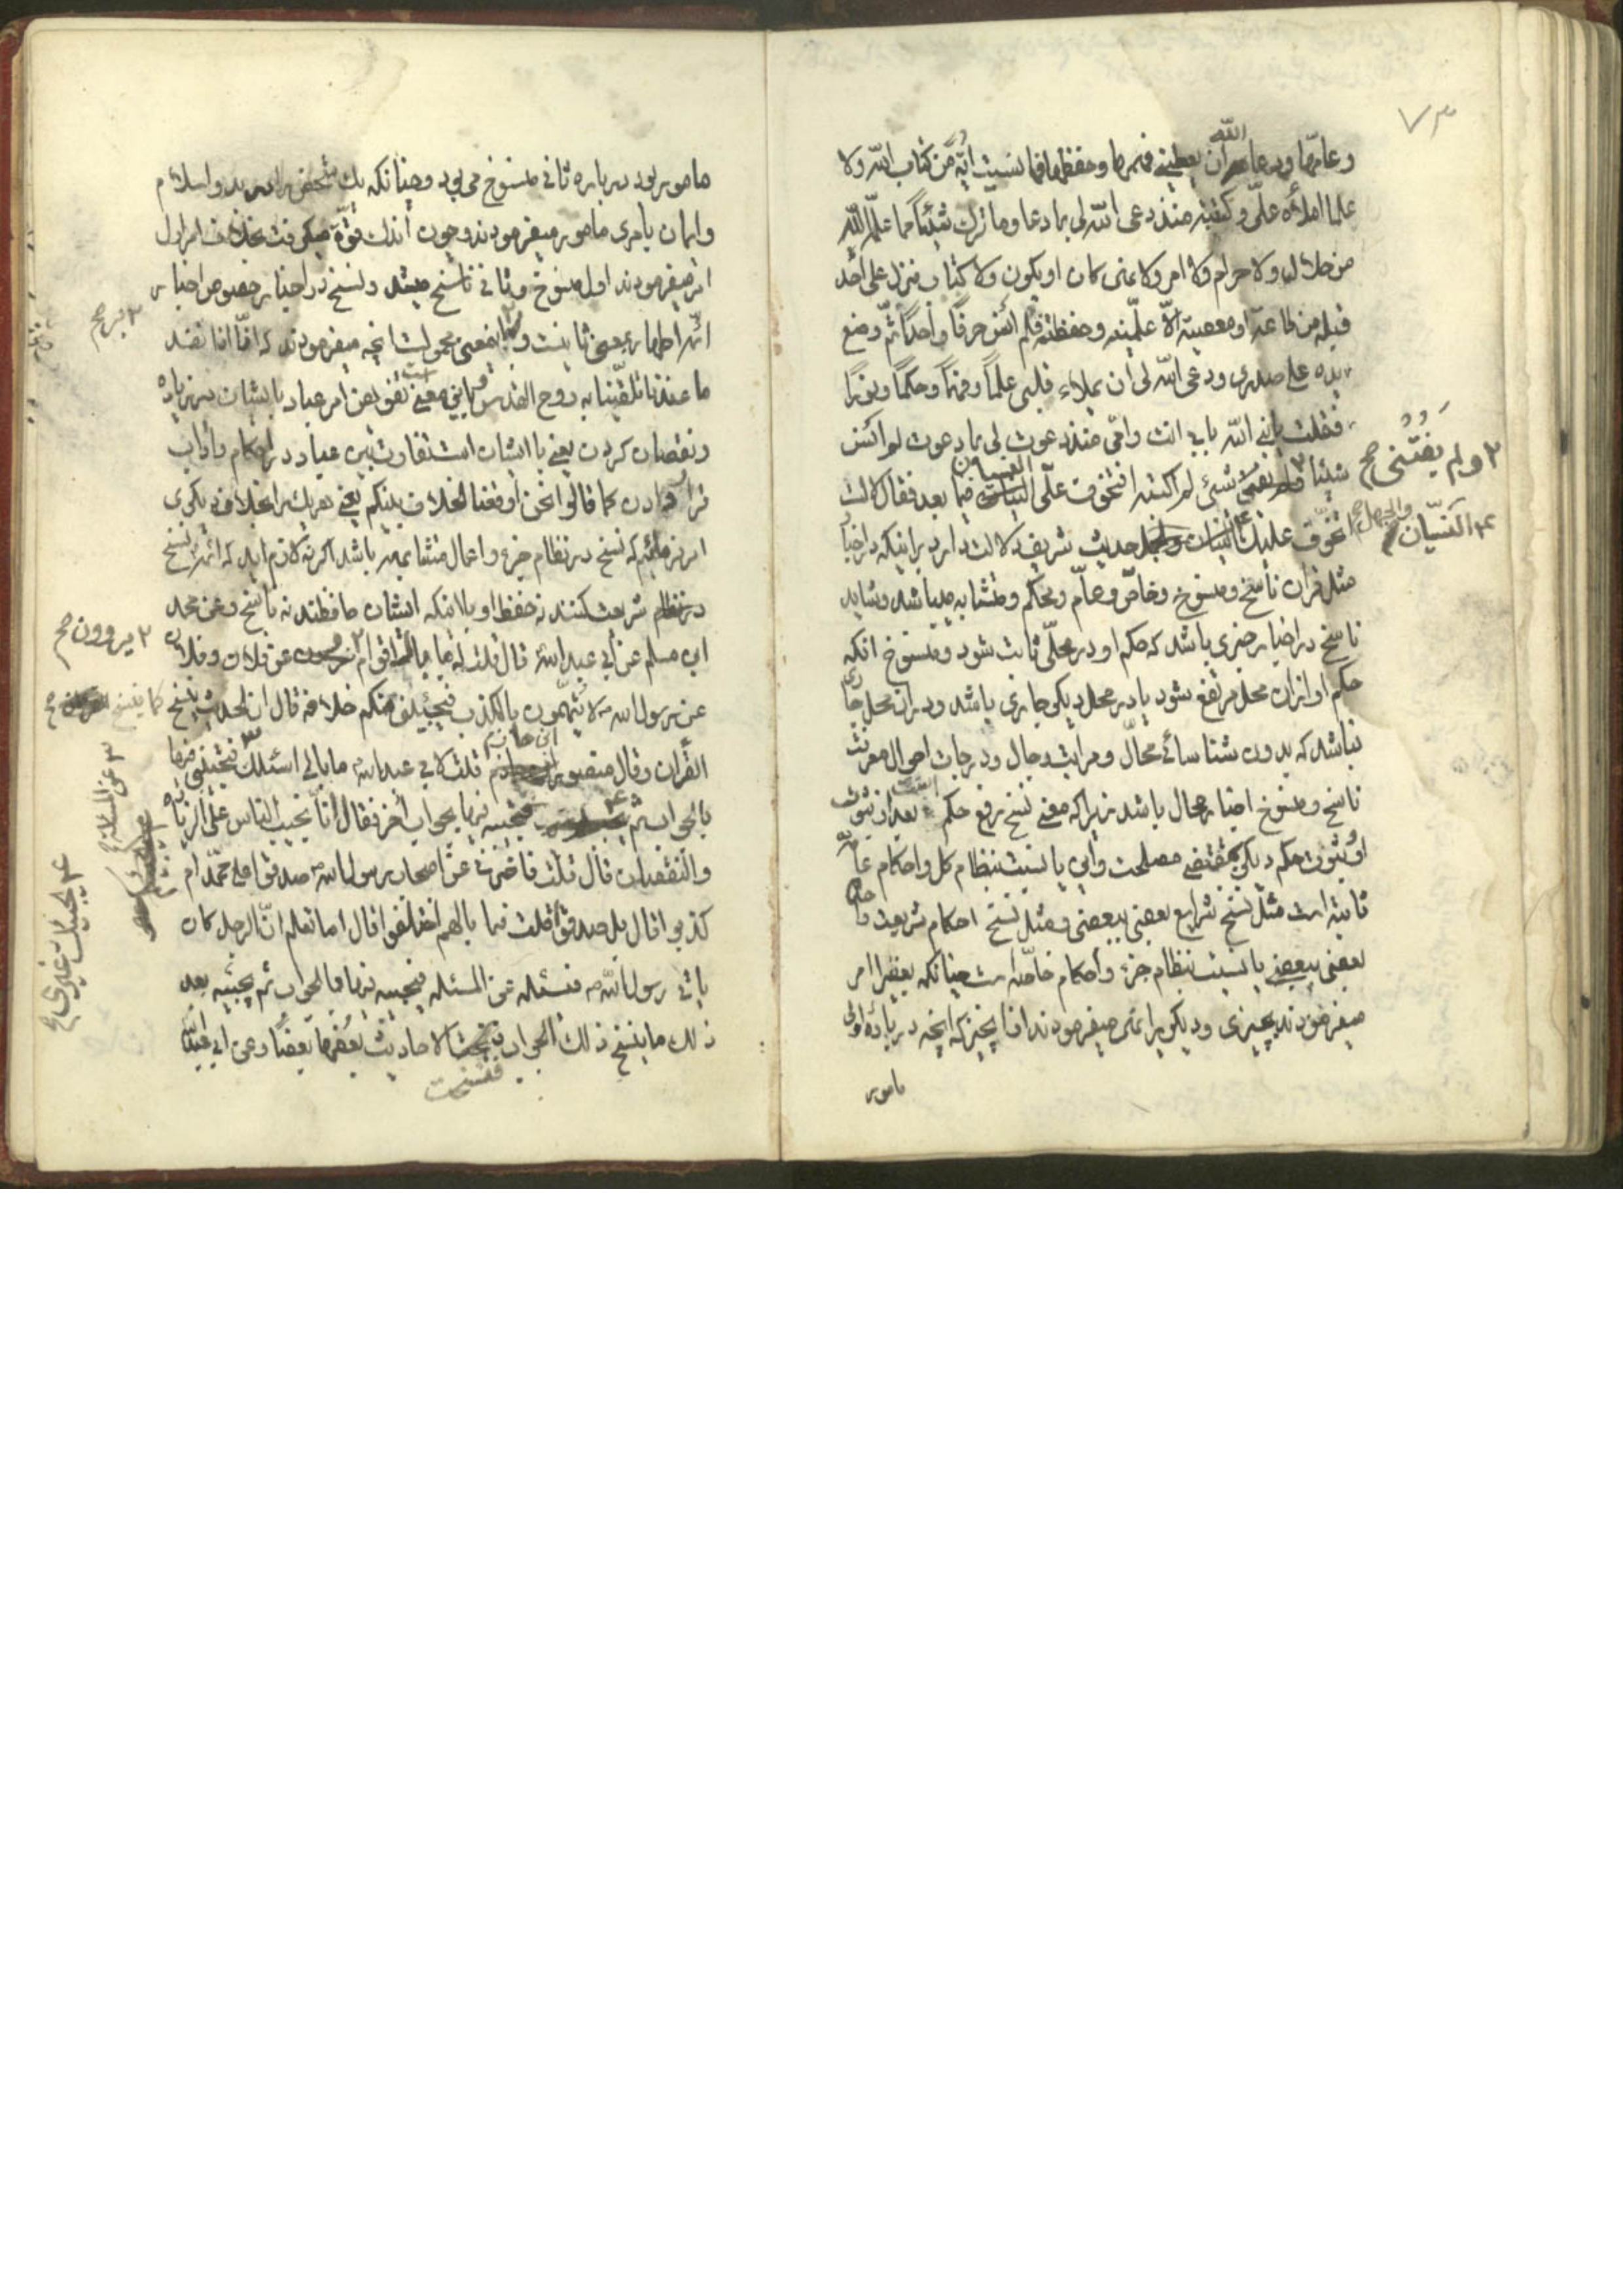 ۷۳
وعامّها ودعا الله أن يعطيني فهمها وحفظها فما نسيت آية من كتاب الله ولا
علما املأه علىّ وكتبته منذ دعى الله لى بما دعا وما ترك شيئًا مما علّمه الله
من حلال ولا حرام ولا امر ولا نهى كان او يكون ولا كتاب منزل على أحد
قبله من طاعة او معصية الّا علّمنيه وحفظته فلم أنس حرفًا واحدًا ثمّ وضع
يده على صدرى ودعى الله لى أن يملاء قلبى علمًا وفهمًا وحكمًا ونورًا
فقلت يا نبى الله بابى انت وامّى منذ دعوت لى بما دعوت لم انس
شيئا ولم يفتنى شئ لم اكتبه افتخوّف علىّ النسيان فيما بعد فقال لا لست
اتخوّف عليك النسيان والجهل حديث شريف دلالت دارد براينكه در اخبار
مثل قران ناسخ ومنسوخ وخاصّ وعامّ ومحكم ومتشابه ميباشد وشايد
ناسخ در اخبار خبرى باشد كه حكم او در محلّى ثابت شود ومنسوخ انكه
حكم او از ان محل مرتفع شود يا در محل ديكر جارى باشد ودر ان محل جارى
نباشد كه بدون شناسائى محالّ ومراتب رجال ودرجات احوال معرفت
ناسخ ومنسوخ اخبار محال باشد زيرا كه معنى نسخ رفع حكم است بعد از ثبوت
او بثبوت حكم ديكر بمقتضى مصلحت واين يا نسبت بنظام كل واحكام عامّه
ثابته است مثل نسخ شرايع بعضى ببعضى ومثل نسخ احكام شريعت واحده
بعضى ببعضى يا نسبت بنظام جزء وأحكام خاصّه است چنانكه بعضى را امر
ميفرمودند بچيزى وديكرى را نهى ميفرمودند از انچيز كه انچه در باره اولى
مامور
۲ ولم يفُتنى صح
۴ النسيان والجهل صح
مامور بود در باره ثانى منسوخ مى بود وچنانكه يك شخص را در بدو اسلام
وايمان بامرى مامور ميفرمودند وچون اندك قوّة ميكرفت بخلاف امر اول
امر ميفرمودند اول منسوخ وثانى ناسخ ميشد ونسخ در اخبار خصوص اخبار
ائمه اطهار باين معنى ثابتست وباين معنى محمولست انچه ميفرمودند كه امّا انا نقتد
ما عندنا تلقّينا به روح القدس واين معنى تفويض امر عباد بايشان در زياده
ونقصان كردن يعنى با ايشان است تفاوت بين عباد در احكام وآداب
قرار دادن كما قالوا نحن اوقعنا الخلاف بينكم يعنى هر يك را بخلاف ديكرى
امر نموديم كه نسخ در نظام جزء واعمال متشابهه باشد اكرنه لازم ايد كه ائمه نسخ
در نظام شريعت كنند نه حفظ او با انكه ايشان حافظند نه ناسخ وعن محمد
ابن مسلم عن أبى عبد الله قال قلت له ما بال اقوام يروون عن فلان وفلان
عن رسول الله ص لا يتّهمون بالكذب فيجيئ منكم خلافه قال ان الحديث ينسخ كما ينسخ
القرآن وقال منصور ابن حازم قلت لابى عبد الله ما بالى اسئلك عن المسئلة فتجيبنى فيها
بالجواب ثم يجيئك غيرى فتجيبه فيها بجواب آخر فقال انّا نجيب الناس على الزيادة
والنقصان قال قلت فاخبرنى عن اصحاب رسول الله ص صدقوا على محمّد ام
كذبوا قال بل صدقوا قلت فما بالهم اختلفوا قال اما تعلم انّ الرجل كان
يأتى رسول الله ص فسئله عن المسئله فيجيبه فيها فالجواب ثم يجيبه بعد
ذلك ما ينسخ ذلك الجواب فنسخت الاحاديث بعضها بعضًا وعن ابى عبيدة
فنسخت
۲ يروون صح
۳ عن المسئلة
۴ يجيئك غيرى صح